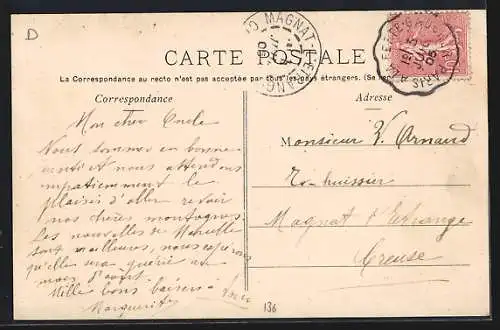 D
CARTE POSTALE
La Correspondance au recto n'est pas acceptée par tous les pays étrangers. (Se
Correspondance
Adresse
MAGNAT-L'ETRANGE
PARIS
Mon cher Oncle
Nous sommes en bonne
santé et nous attendons
impatiemment le
plaisir d'aller revoir
nos chères montagnes.
Les nouvelles de
sont meilleures, nous espérons
qu'elle sera guérie au
mois d'août.
Mille bons baisers
Marguerite
Monsieur V. Arnaud
Ex-huissier
Magnat l'Etrange
Creuse
136